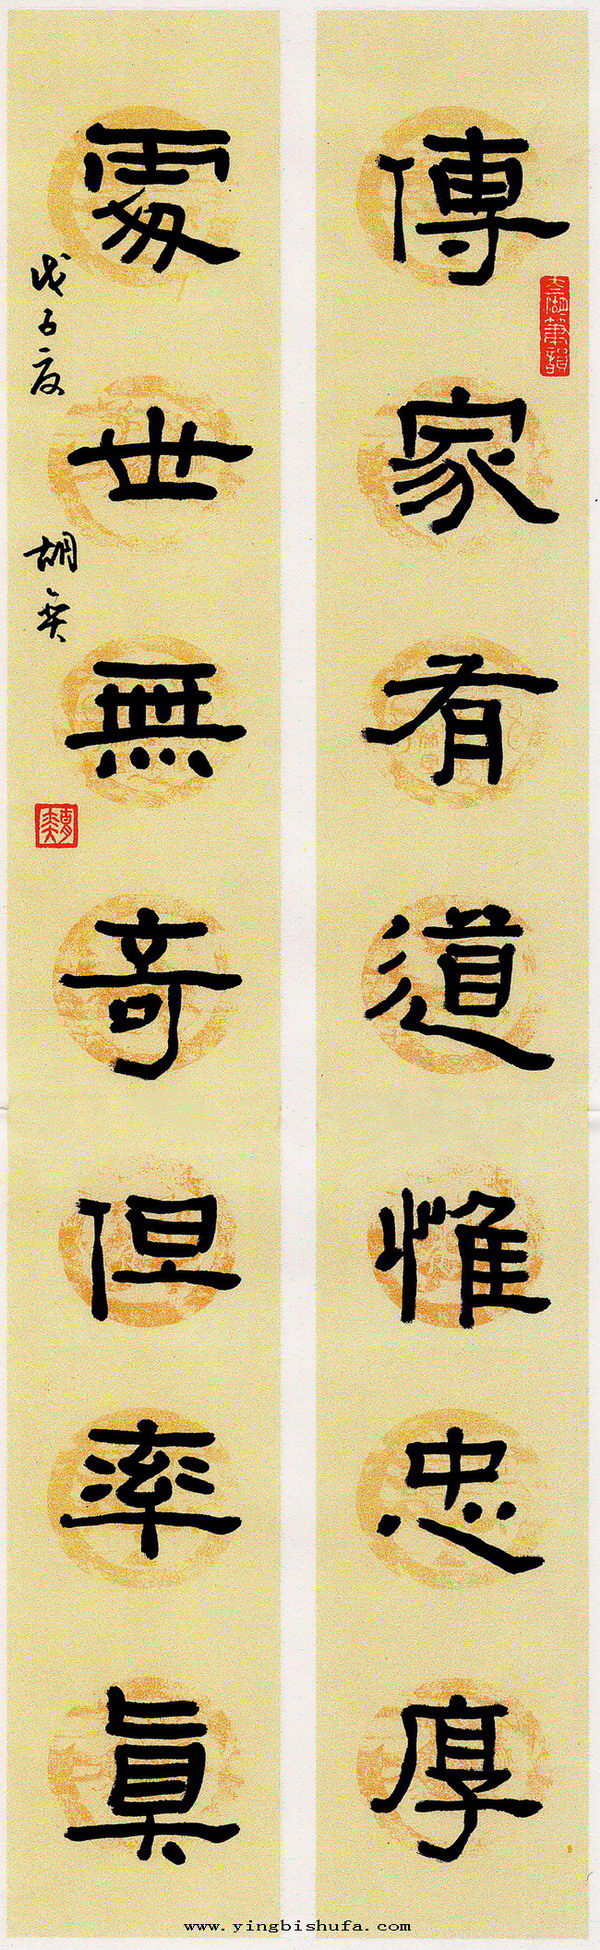 傳家有道惟忠厚
處世無奇但率真
戊子夏
胡奕
www.yingbishufa.com